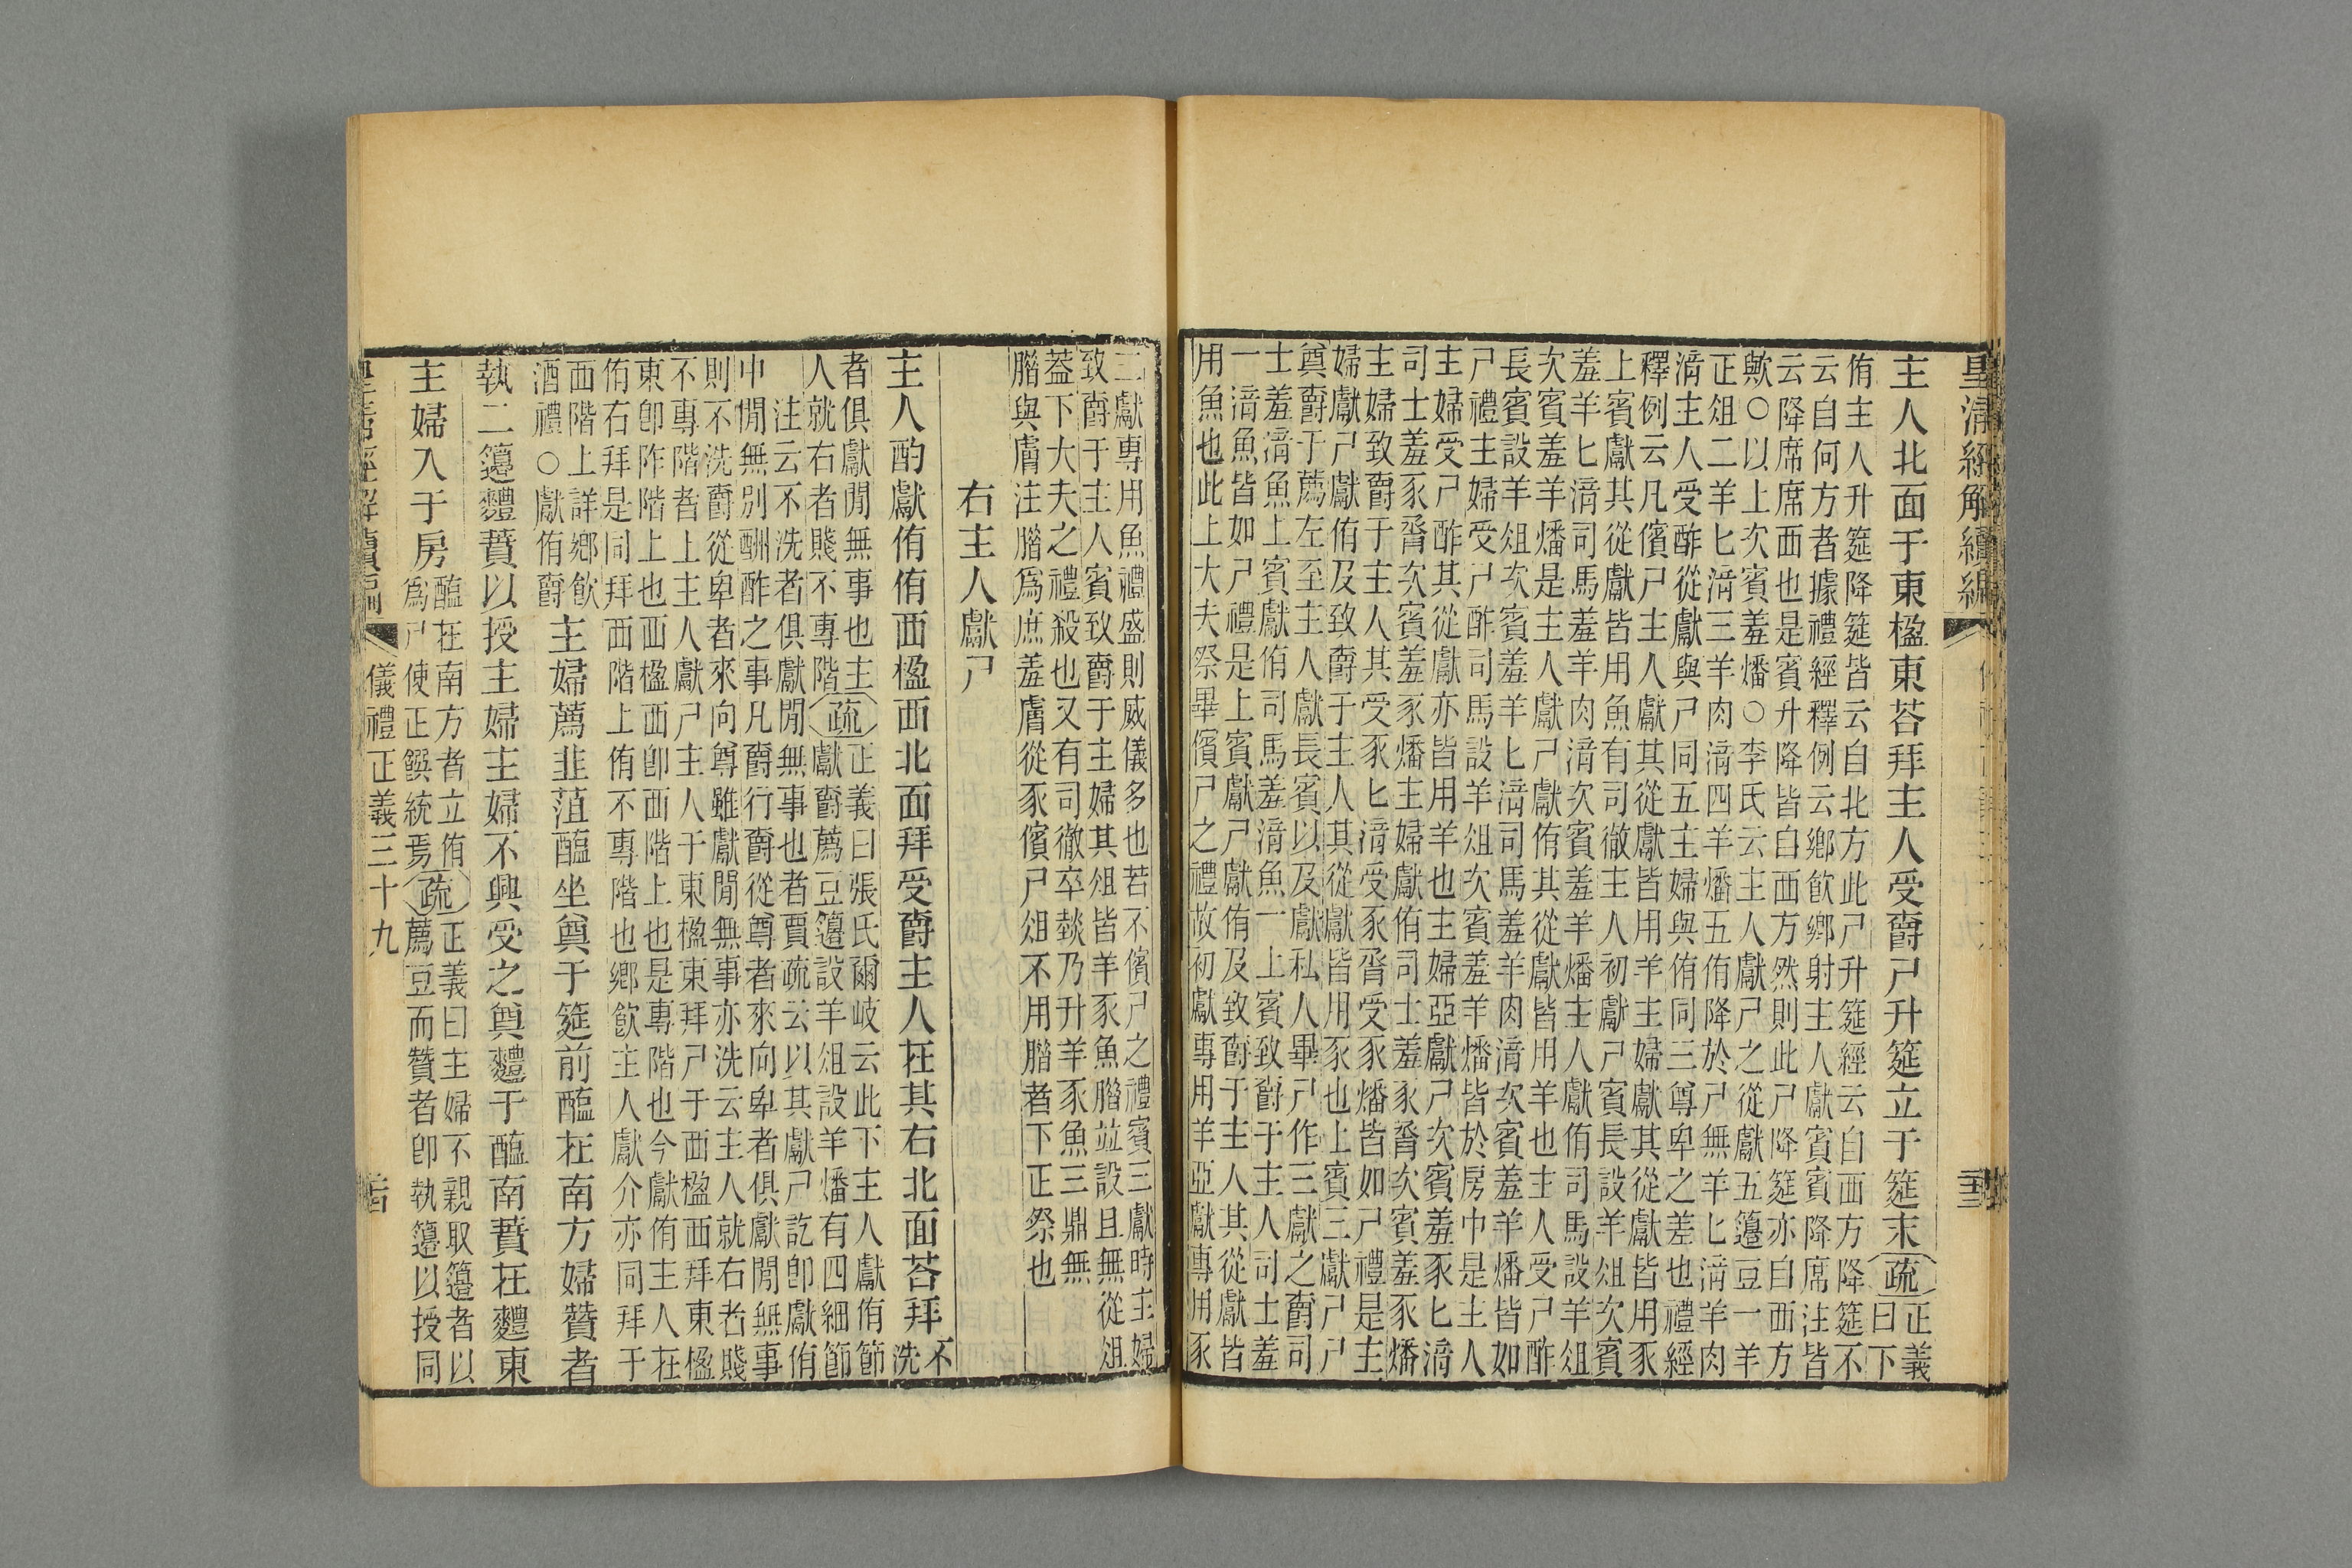 皇淸經解續編
主人北面于東楹東荅拜主人受爵尸升筵立于筵末疏正義
曰下
侑主人升筵降筵皆云自北方此尸升筵經云自西方降筵不
云自何方者據禮經釋例云鄉飮鄉射主人獻賓賓降席注皆
云降席席西也是賓升降皆自西方然則此尸降筵亦自西方
歟○以上次賓羞燔○李氏云主人獻尸之從獻五籩豆一羊
正俎二羊匕湆三羊肉湆四羊燔五侑降於尸無羊匕湆羊肉
湆主人受酢從獻與尸同五主婦與侑同三尊卑之差也禮經
釋例云凡儐尸主人獻其從獻皆用羊主婦獻其從獻皆用豕
上賓獻其從獻皆用魚有司徹主人初獻尸賓長設羊俎次賓
羞羊匕湆司馬羞羊肉湆次賓羞羊燔主人獻侑司馬設羊俎
次賓羞羊燔是主人獻尸獻侑其從獻皆用羊也主人受尸酢
長賓設羊俎次賓羞羊匕湆司馬羞羊肉湆次賓羞羊燔皆如
尸禮主婦受尸酢司馬設羊俎次賓羞羊燔皆於房中是主人
主婦受尸酢其從獻亦皆用羊也主婦亞獻尸次賓羞豕匕湆
司士羞豕脀次賓羞豕燔主婦獻侑司士羞豕脀次賓羞豕燔
主婦致爵于主人其受豕匕湆受豕脀受豕燔皆如尸禮是主
婦獻尸獻侑及致爵于主人其從獻皆用豕也上賓三獻尸尸
奠爵于薦左至主人獻長賓以及獻私人畢尸作三獻之爵司
士羞湆魚上賓獻侑司馬羞湆魚一上賓致爵于主人司士羞
一湆魚皆如尸禮是上賓獻尸獻侑及致爵于主人其從獻皆
用魚也此上大夫祭畢儐尸之禮故初獻專用羊亞獻專用豕
三獻專用魚禮盛則威儀多也若不儐尸之禮賓三獻時主婦
致爵于主人賓致爵于主婦其俎皆羊豕魚腊竝設且無從俎
葢下大夫之禮殺也又有司徹卒燅乃升羊豕魚三鼎無
腊與膚注腊爲庶羞膚從豕儐尸俎不用腊者下正祭也
右主人獻尸
主人酌獻侑侑西楹西北面拜受爵主人在其右北面荅拜不
洗
者俱獻閒無事也主疏正義曰張氏爾岐云此下主人獻侑節
人就右者賤不專階獻爵薦豆籩設羊俎設羊燔有四細節
注云不洗者俱獻閒無事也者賈疏云以其獻尸訖卽獻侑
中閒無別酬酢之事凡爵行爵從尊者來向卑者俱獻閒無事
則不洗爵從卑者來向尊雖獻閒無事亦洗云主人就右者賤
不專階者上主人獻尸主人于東楹東拜尸于西楹西拜東楹
東卽阼階上也西楹西卽西階上也是專階也今獻侑主人在
侑右拜是同拜西階上侑不專階也鄉飮主人獻介亦同拜于
西階上詳鄉飮
酒禮○獻侑爵主婦薦韭菹醓坐奠于筵前醓在南方婦贊者
執二籩麷蕡以授主婦主婦不興受之奠麷于醓南蕡在麷東
主婦入于房醓在南方者立侑疏正義曰主婦不親取籩者以
爲尸使正饌統焉薦豆而贊者卽執籩以授同
皇淸經解續編
儀禮正義三十九